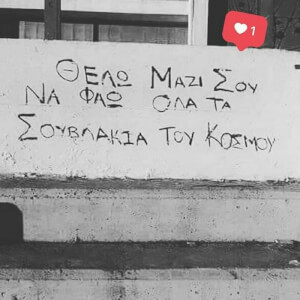 1
ΘΕΛΩ ΜΑΖΙ ΣΟΥ
ΝΑ ΦΑΩ ΟΛΑ ΤΑ
ΣΟΥΒΛΑΚΙΑ ΤΟΥ ΚΟΣΜΟΥ